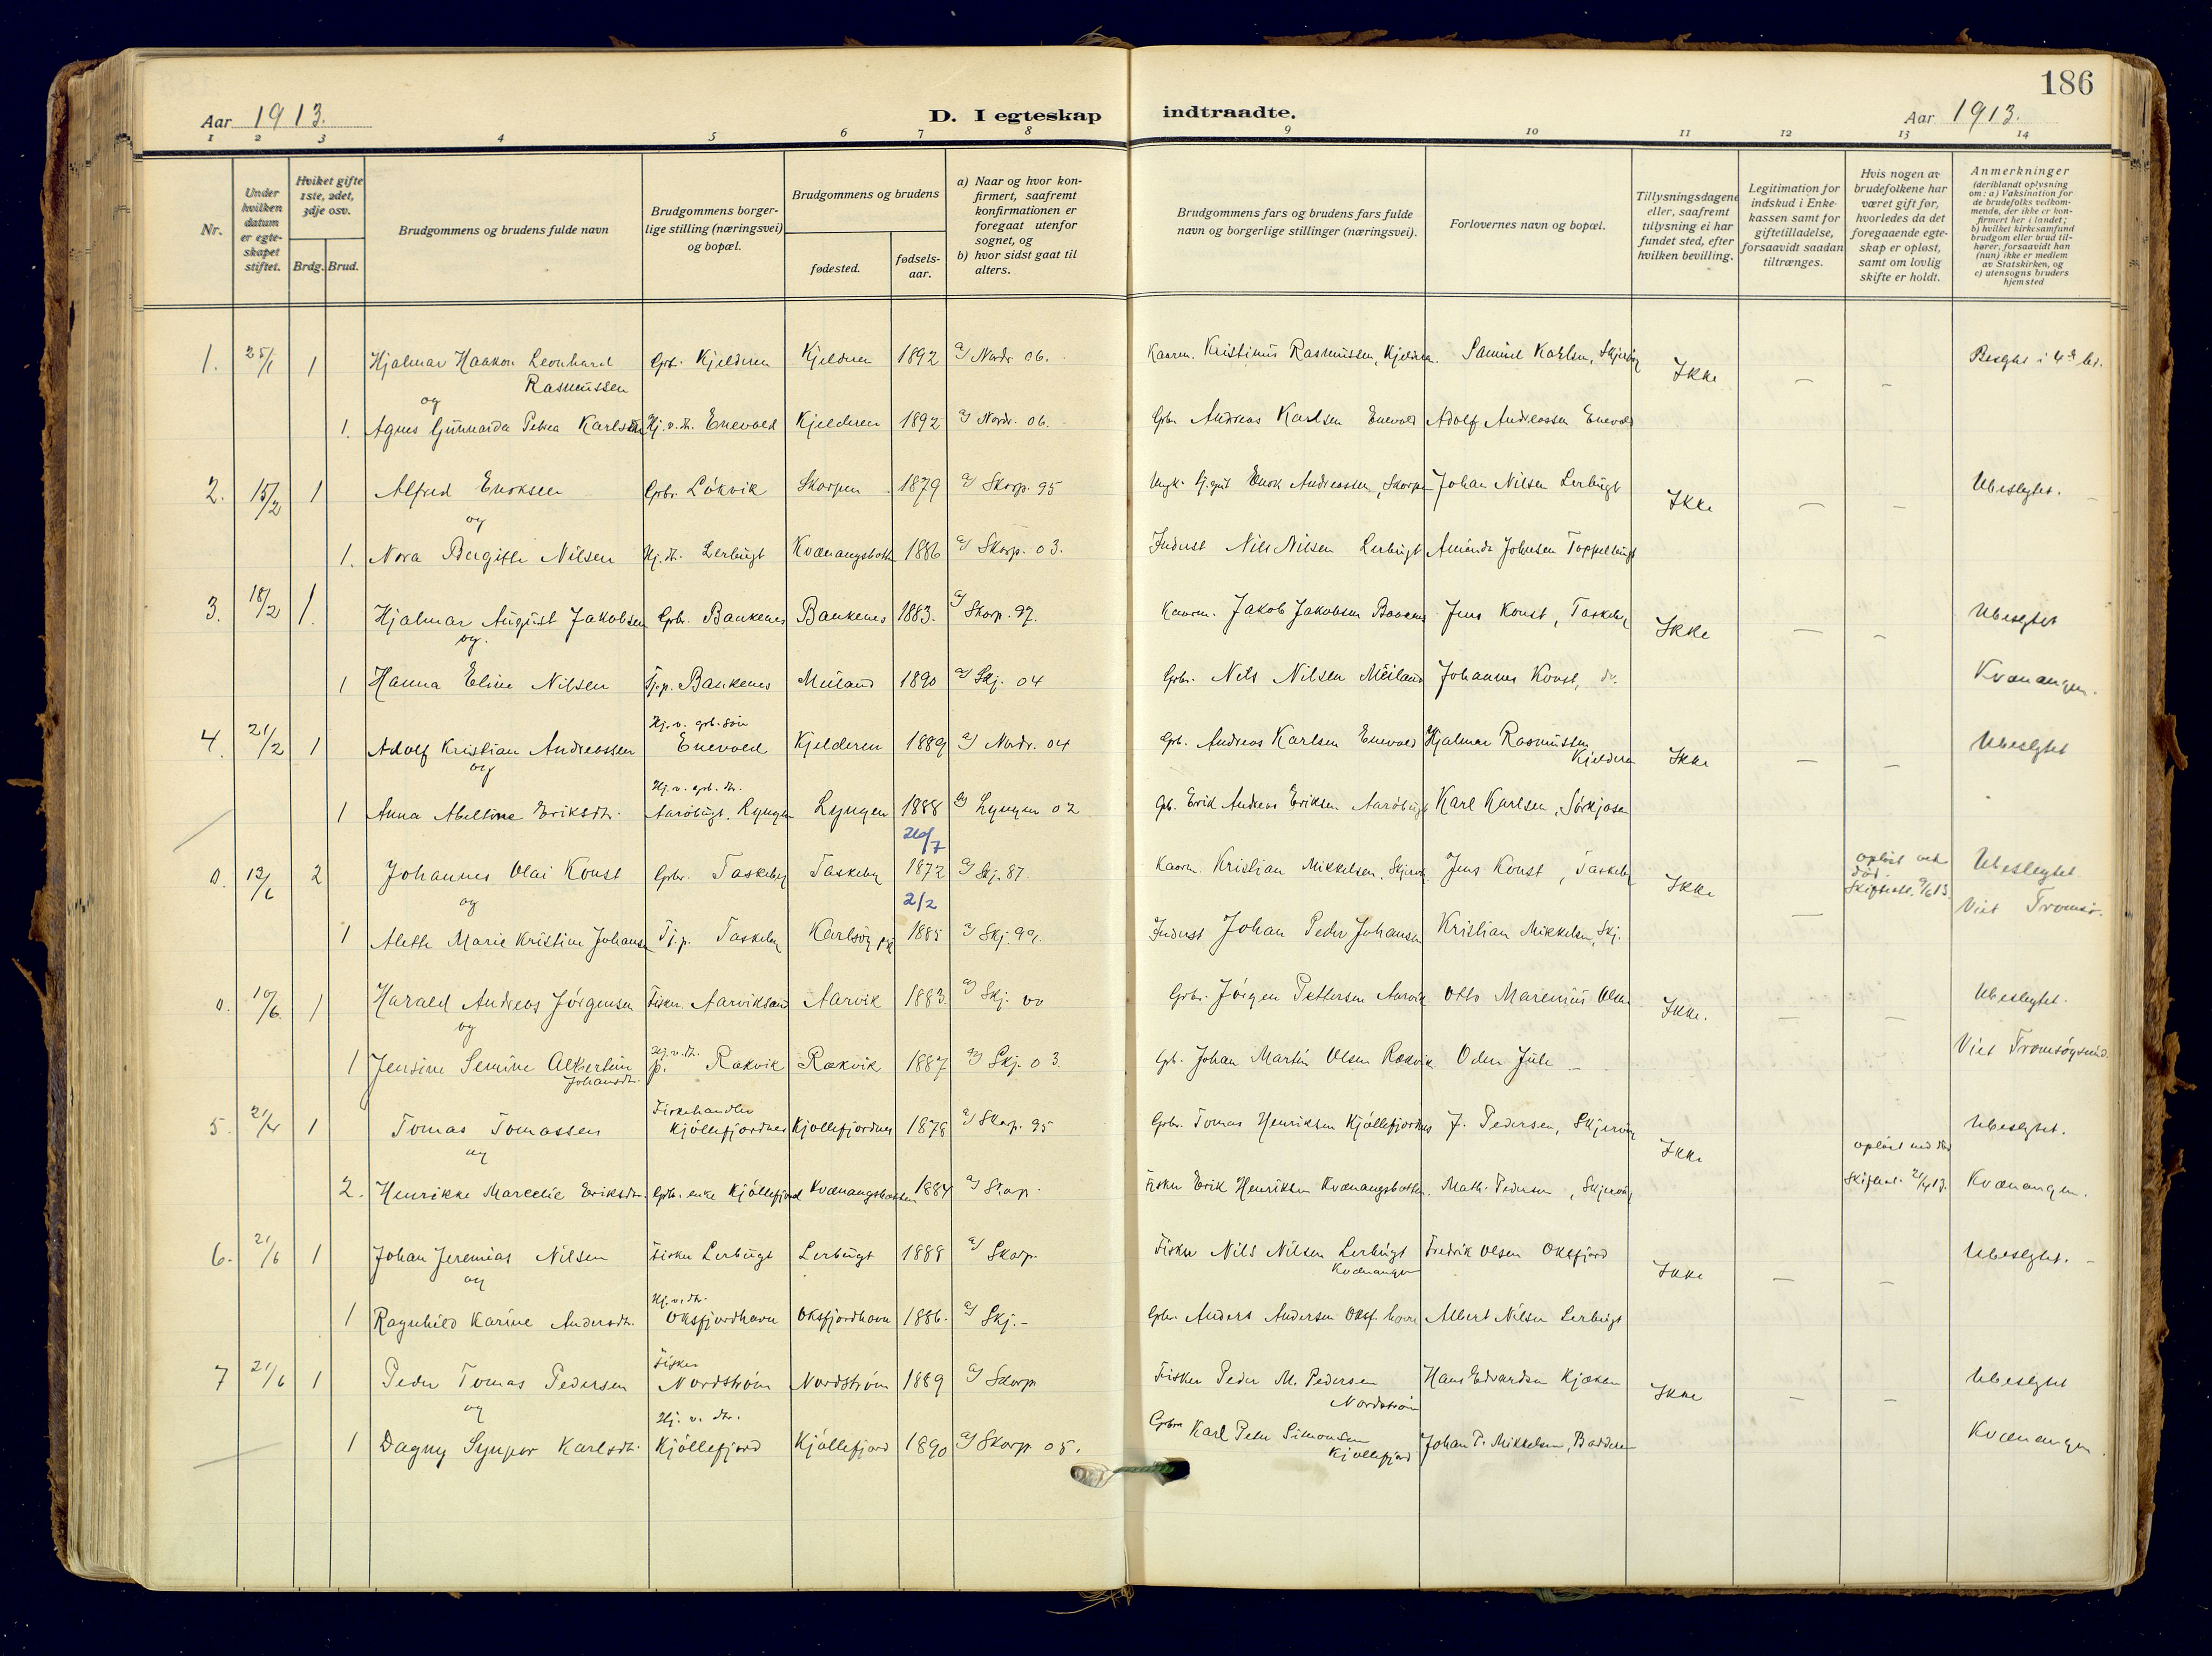 186
Aar 1913. D. I egteskap indtraadte. Aar 1913.
1 2 3 4 5 6 7 8 9 10 11 12 13 14
Nr.
Under hvilken datum er egteskapet stiftet.
Hviket gifte 1ste, 2det, 3dje osv.
Brdg. Brud.
Brudgommens og brudens fulde navn
Brudgommens borgerlige stilling (næringsvei) og bopæl.
Brudgommens og brudens
fødested.
fødselsaar.
a) Naar og hvor konfirmert, saafremt konfirmationen er foregaat utenfor sognet, og
b) hvor sidst gaat til alters.
Brudgommens fars og brudens fars fulde navn og borgerlige stillinger (næringsvei).
Forlovernes navn og bopæl.
Tillysningsdagene eller, saafremt tillysning ei har fundet sted, efter hvilken bevilling.
Legitimation for indskud i Enkekassen samt for giftetilladelse, forsaavidt saadan tiltrænges.
Hvis nogen av brudefolkene har været gift før, hvorledes da det foregaaende egteskap er opløst, samt om lovlig skifte er holdt.
Anmerkninger (deriblandt oplysning om: a) Vaksination for de brudefolks vedkommende, der ikke er konfirmert her i landet; b) hvilket kirkesamfund brudgom eller brud tilhører, forsaavidt han (hun) ikke er medlem av Statskirken, og c) utensogns bruders hjemsted
1. 25/1 1 Hjalmar Haakon Leonhard Rasmussen Grb. Kjelderen Kjelderen 1892 a) Nordr. 06. Kaarm. Kristinus Rasmussen, Kjelderen. Samuel Karlsen, Skjervøy Ikke — — Beslgtet i 4de led.
og
1. Agnes Gunnarda Petrea Karlsdtr. Hj.v.dt. Enevold Kjelderen 1892 a) Nordr. 06. Grbr. Andreas Karlsen Enevold Adolf Andreassen Enevold
2. 15/2 1 Alfred Enoksen Grbr. Lökvik Skorpen 1879 a) Skorp. 95 Enok Andreassen, Skorpen Johan Nilsen Lerbugt Ikke — — Ubeslgtet.
og
1. Nora Bergitte Nilsen Hj.dt. Lerbugt Kvænangsbotn 1886 a) Skorp. 03. Inderst Nils Nilsen Lerbugt Amandt Johnsen Toppelbugt
3. 18/2 1. Hjalmar August Jakobsen Grbr. Bankenes Bankenes 1883. a) Skorp. 97. Kaarm. Jakob Jakobsen Jens Konst, Taskeby Ikke — — Ubeslgtet
og.
1 Hanna Eline Nilsen Tj.p. Bankenes Meiland 1890 a) Skj. 04 Grbr. Nils Nilsen Meiland Johannes Konst, do. Kvænangen.
4. 21/2 1 Adolf Kristian Andreassen Hj.v. grb. søn Enevold Kjelderen 1889 a) Nordr. 04 Grb. Andreas Karlsen Enevold Hjalmar Rasmussen Kjelderen Ikke — — Ubeslgtet
og
1 Anna Abeltine Eriksdtr. Hj.v. grb. dtr. Aarøbugt. Lyngen Lyngen 1888 a) Lyngen 02 Grb. Erik Andreas Eriksen Aarøbugt Karl Karlsen, Sørkjosen
0. 13/6 2 Johannes Olai Konst Grbr. Taskeby Taskeby 26/7 1872 a) Skj. 87. Kaarm. Kristian Mikkelsen, Skjervøy Jens Konst, Taskeby Ikke — opløst ved död. Skifteatt. 9/6 13. Ubeslegtet. Viet Tromsø.
og
1 Alette Marie Kristine Johansen Tj.p. Taskeby Karlsöy 2/2 1885 a) Skj. 99. Inderst Johan Peder Johansen Kristian Mikkelsen, Skj.
0. 10/6. 1 Harald Andreas Jörgensen Fisker. Aarviksand Aarvik 1883. a) Skj. 00 Grbr. Jörgen Pettersen Aarvik Otto Marenius Olsen Ikke. — — Ubeslegtet.
og
1 Jensine Semine Albertine Johansdtr. Hj.v.dt. p. Rækvik Rækvik 1887 a) Skj. 03. Grb. Johan Martin Olsen Rækvik Oden Juli — Viet Tromsøysund.
5. 21/4 1 Tomas Tomassen Fiskehandler Kjöllefjordnes Kjöllefjordnes 1878 a) Skorp. 95 Grbr. Tomas Henriksen Kjöllefjordnes J. Pedersen, Skjervöy Ikke opløst ved död Ubeslgtet.
og
2. Henrikke Marcelie Eriksdtr. Grbr. enke Kjöllefjord Kvænangsbotten 1884 a) Skorp. Fisker Erik Henriksen Kvænangsbotten. Math. Pedersen, Skjervöy Skifteat. 21/4 13. Kvænangen.
6. 21/6 1 Johan Jeremias Nilsen Fisker Lerbugt Lerbugt 1888 a) Skorp. Fisker Nils Nilsen Lerbugt Kvænangen Fredrik Olsen Oksfjord Ikke — — Ubeslgtet.
og
1 Ragnhild Karine Andersdtr. Hj.v.dtr. Oksfjordhavn Oksfjordhavn 1886. a) Skj. – Grbr. Anders Andersen Oksf. havn Albert Nilsen Lerbugt
7 21/6 1 Peder Tomas Pedersen Fisker Nordström Nordström 1889 a) Skorp Fisker Peder M. Pedersen Nordström Hans Edvardsen Kjækan Ikke — — Ubeslgtet
og
1 Dagny Synpor Karlsdtr. Hj. v. dtr. Kjöllefjord Kjöllefjord 1890 a) Skorp. 05. Grbr. Karl Peter Simonsen Kjöllefjord Johan P. Mikkelsen, Badderen Kvænangen.